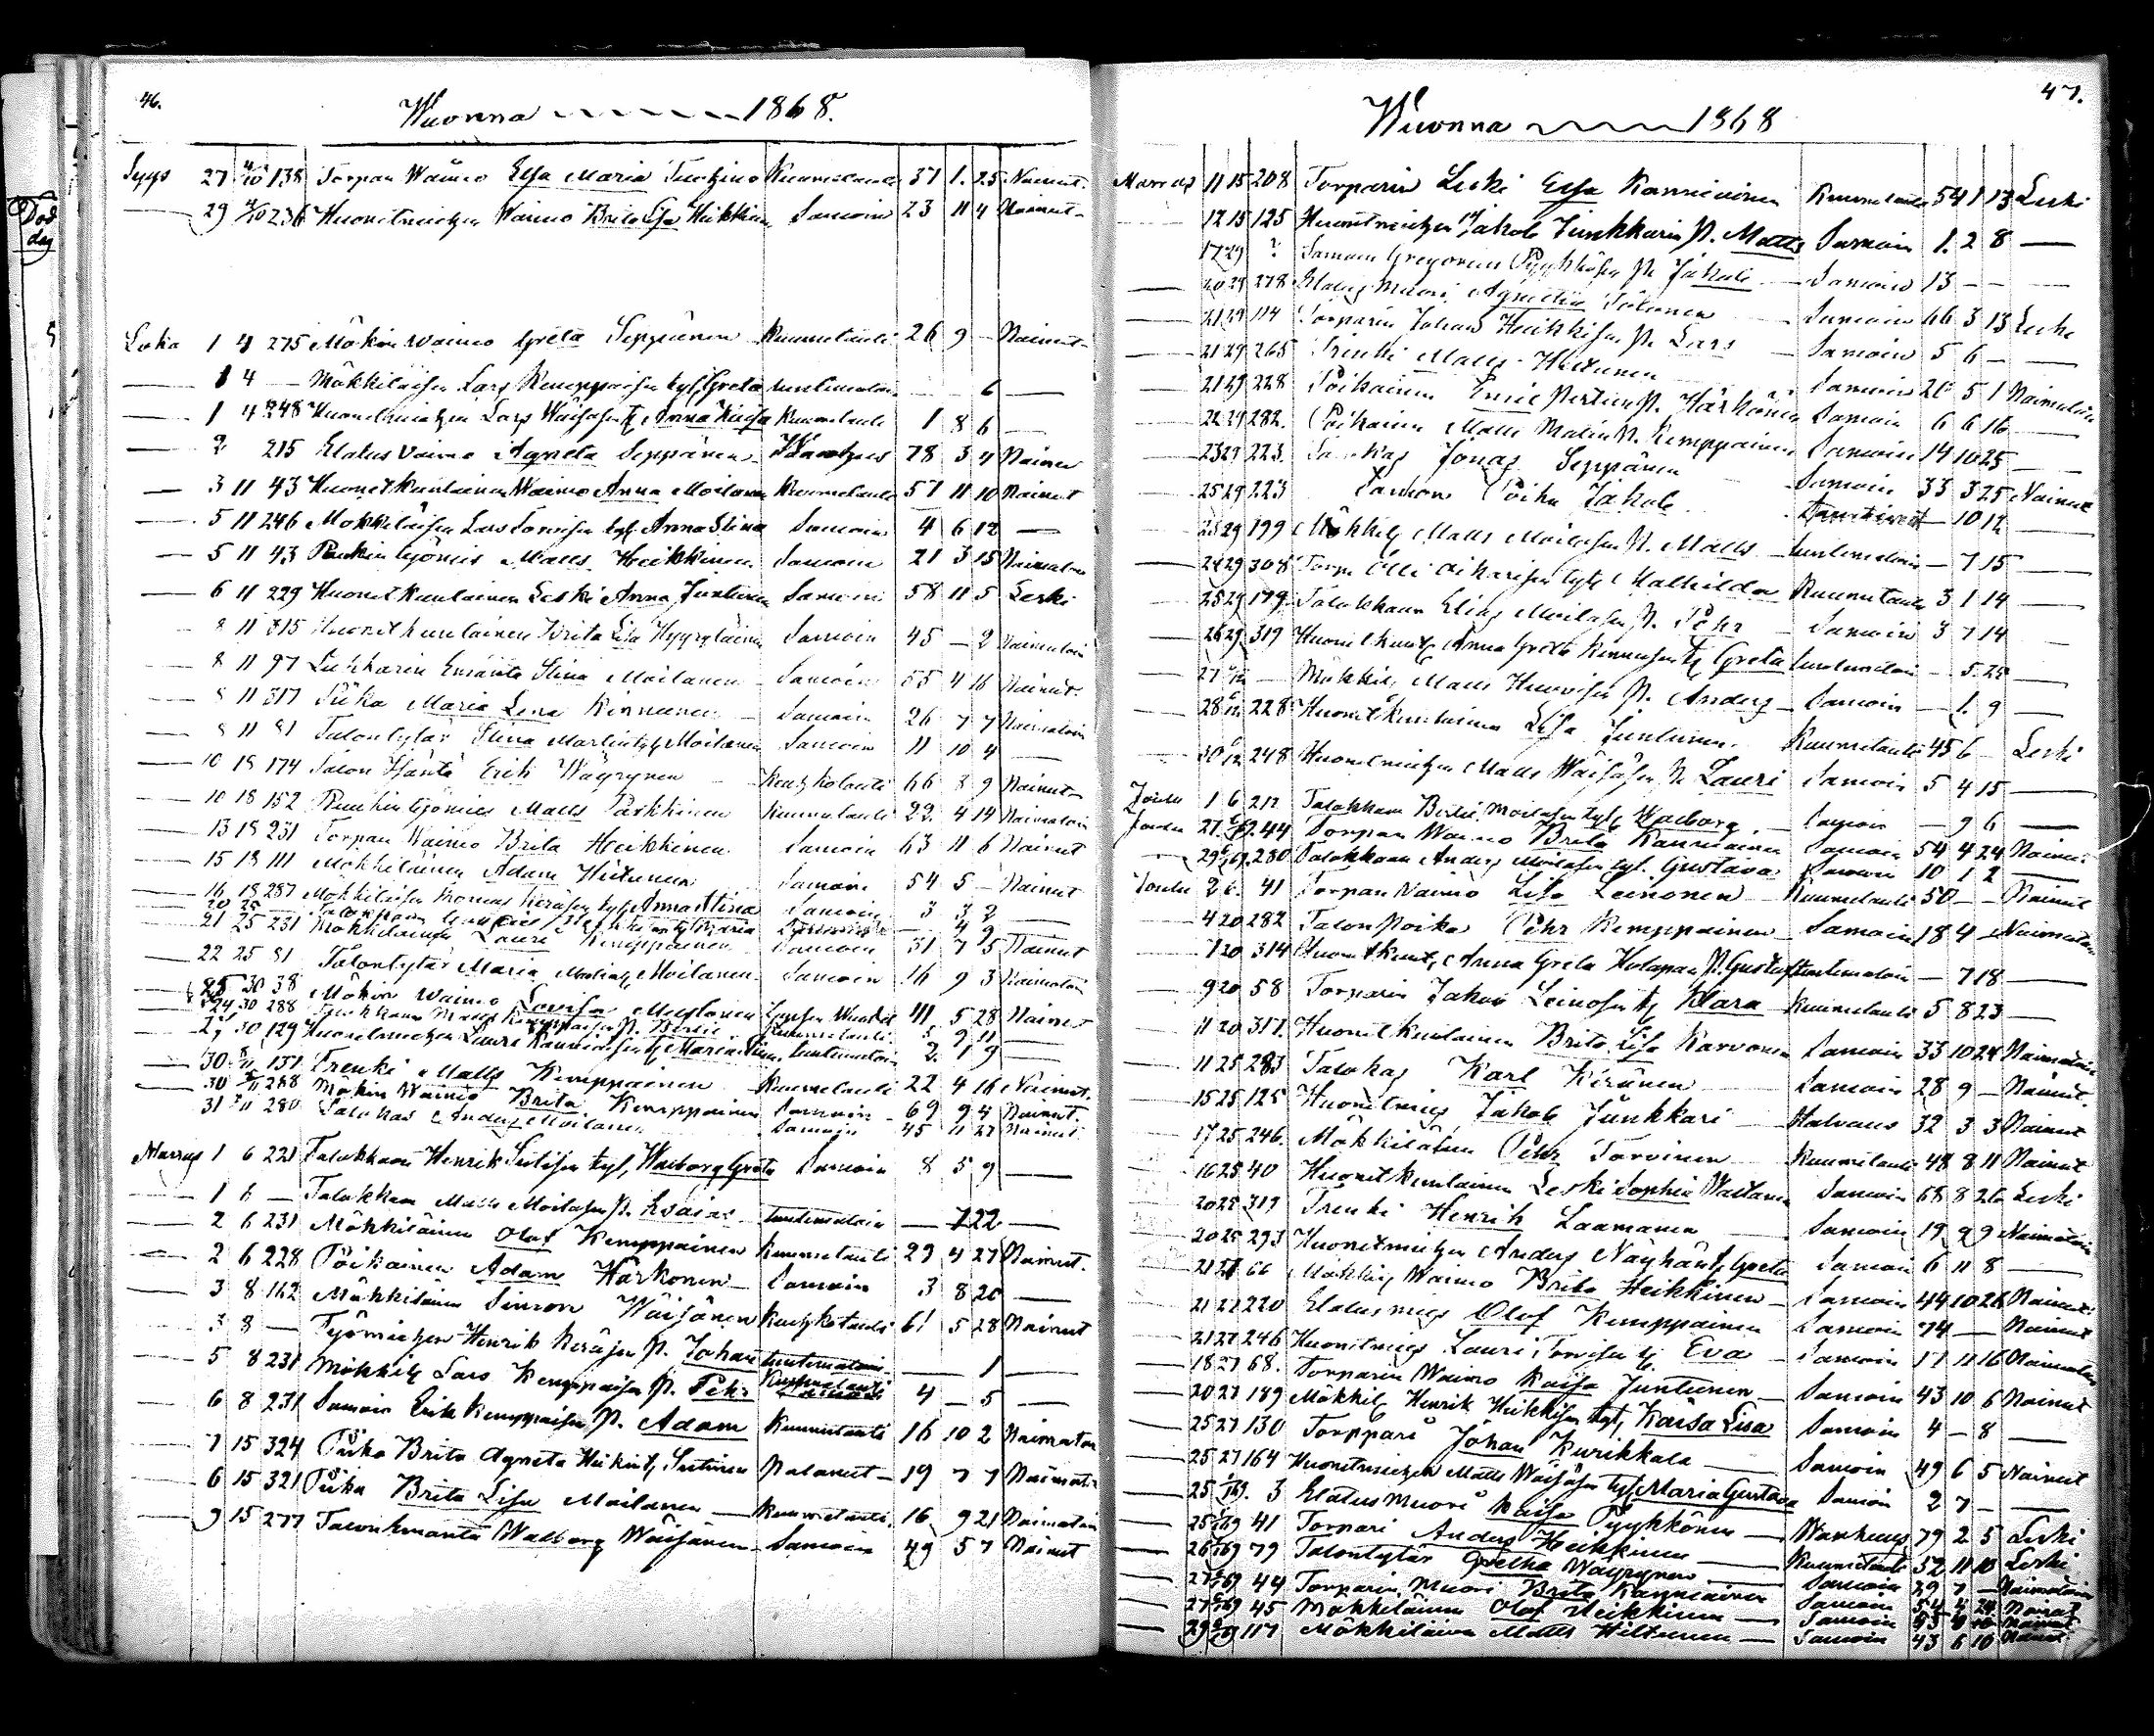 46.
Wuonna 1868.
Syys 27 4/10 138 Torpan Waimo Elsa Maria Kuumetauti 37 1. 25 Nainut.
29 4/10 236 Huonetmiehen Waimo Brita Lisa Heikkinen Samoin 23 11 4 Nainut
Loka 1 4 275 Mökin waimo Greta Seppänen Kuumetauti 26 9 - Nainut
1 4 — Mökkiläisen Lars Kemppaisen tyt. Greta tuntematoin 6 —
1 4 248 Huonetmiehen Lars Wäisäsen t. Anna Kaisa Kuumetauti 1 8 6 —
2 215 Elatus vaimo Agneta Seppänen Wanhuus 78 3 4 Nainen
3 11 43 Huonetkuntainen Waimo Anna Moilanen Kuumetauti 57 11 10 Nainut
5 11 246 Mökkiläisen Lars Torvisen tyt. Anna Stina Samoin 4 6 12 —
5 11 43 Ruukin työmies Matts Heikkinen Samoin 21 3 15 Naimatoin
6 11 229 Huonetkuntainen Leski Anna Juntunen Samoin 58 11 5 Leski
8 11 315 Huonetkuntainen Brita Lisa Hyyryläinen Samoin 45 — 2 Naimatoin
8 11 97 Lukkarin Emäntä Stina Moilanen Samoin 55 4 16 Nainut
8 11 317 Piika Maria Lena Kinnunen Samoin 26 7 7 Naimatoin
8 11 81 Talontytär Stina Martint. Moilanen Samoin 11 10 4 —
10 18 174 Talon Isäntä Erik Wäyrynen Keuhkotauti 66 3 9 Nainut
10 18 152 Ruukin työmies Matts Parkkinen Kuumetauti 22 4 14 Naimatoin
13 18 231 Torpan Waimo Brita Heikkinen Samoin 63 11 6 Nainut
15 18 111 Mökkiläinen Adam Hiltunen Samoin 54 5 — Nainut
16 18 287 Mökkiläisen Thomas Keräsen tyt. Anna Stina Samoin 3 3 2 —
20 25 Maria 4 9
21 25 231 Mökkiläinen Lauri Kemppainen Samoin 31 7 5 Nainut
22 25 81 Talontytär Maria Martint. Moilanen Samoin 16 9 3 Naimatoin
30 38 Mökin waimo Lovisa Mustonen 41 5 28 Nainut
24 30 288 Talokkaan Matts Kemppaisen p. Bertil Kuumetauti 5 9 11 —
27 30 129 Huonetmiehen Lauri Kauniaisen t. Maria Stina tuntematoin 2 1 9 —
30 8/11 137 Trenki Matts Kemppainen Kuumetauti 22 4 16 Nainut.
30 8/11 288 Mökin Waimo Brita Kemppainen Samoin 69 9 4 Nainut.
31 8/11 280 Talokas Anders Moilanen Samoin 45 11 27 Nainut
Marras 1 6 221 Talokkaan Henrik Sutisen tyt. Walborg Greta Samoin 8 5 9 —
1 6 — Talokkaan Matts Moilasen p. Esaias tuntematoin — 7 22 —
2 6 231 Mökkiläinen Olof Kemppainen Kuumetauti 29 4 27 Nainut.
2 6 228 Poikainen Adam Härkönen Samoin 3 8 20 —
3 8 162 Mökkiläinen Simon Wäisänen Keuhkotauti 61 5 28 Nainut
3 8 — Työmiehen Henrik Keräsen p. Johan tuntematoin — — 1 —
5 8 231 Mökkil. Lars Kemppaisen p. Pehr Kuumetauti 4 — 5 —
6 8 231 Samoin Erik Kemppaisen p. Adam Kuumetauti 16 10 2 Naimatoin
7 15 324 Piika Brita Agneta Heikint. Sutinen Palanut 19 7 7 Naimatoin
6 15 321 Piika Brita Lisa Moilanen Kuumetauti 16 9 21 Naimatoin
9 15 277 Talonemäntä Walborg Wäisänen Samoin 49 5 7 Nainut
47.
Wuonna 1868
Marras 11 15 208 Torparin Leski Elsa Kanniainen Kuumetauti 54 1 13 Leski
12 15 125 Huonetmiehen Jakob Junkkarin p. Matts Samoin 1. 2 8 —
17 29 ? Samoin Gregorius Pyykkösen p. Jakob Samoin 13 — — —
20 29 278 Elatus Muori Agneta Tolonen Samoin 66 3 13 Leski
21 29 114 Torparin Johan Heikkisen p. Lars Samoin 5 6 — —
21 29 265 Trenki Matts Hiltunen Samoin 20 5 1 Naimatoin
21 29 228 Poikainen Emil Pertin p. Härkönen Samoin 6 6 16 —
22 29 282. Poikainen Matts Matin p. Kemppainen Samoin 14 10 25 —
23 29 223 Talokas Jonas Seppänen Samoin 33 3 25 Nainut
25 29 223 Samoin Poika Jakob — 10 12 —
23 29 199 Mökkil. Matts Moilasen p. Matts tuntematoin — 7 15 —
24 29 308 Torp. Olli Aikarisen tyt. Mathilda Kuumetauti 3 1 14 —
25 29 179 Talokkaan Elias Moilasen p. Pehr Samoin 3 7 14 —
26 29 319 Huonetkunt. Anna Greta Kinnusen t. Greta tuntematoin — 5 25 —
27 6/12 — Mökkil. Matts Huovisen p. Anders Samoin — 1. 9 —
28 6/12 228 Huonetkuntainen Lisa Juntunen. Kuumetauti 45 6 Leski
30 6/12 248 Huonetmiehen Matts Wäisäsen p. Lauri Samoin 5 4 15 —
Joulu 1 6 212 Talokkaan Bertil Moilasen tyt. Walborg Samoin — 9 6 —
Joulu 27 44 Torpan Waimo Brita Kanniainen Samoin 54 4 24 Nainut
29 280 Talokkaan Anders Moilasen tyt. Gustava Samoin 10 1 2 —
Joulu 2 6. 41 Torpan Waimo Lisa Leinonen Kuumetauti 50 — — Nainut
4 20 282 Talon Poika Pehr Kemppainen Samoin 18 4 — Naimatoin
7 20 314 Huonetkunt. Anna Greta Holapan p. Gustaf tuntematoin — 7 18 —
9 20 58 Torparin Jakob Leinosen t. Klara Kuumetauti 5 8 23 —
11 20 317. Huonetkuntainen Brita Lisa Karvonen Samoin 33 10 24 Naimatoin
11 25 283 Talokas Karl Keränen Samoin 28 9 — Nainut.
15 25 125 Huonetmies Jakob Junkkari Halvaus 32 3 3 Nainut
17 25 246. Mökkiläinen Pehr Torvinen Kuumetauti 48 8 11 Nainut
16 25 40 Huonetkuntainen Leski Sophia Waltanen Samoin 68 8 26 Leski
20 25 319 Trenki Henrik Laamanen Samoin 19 9 9 Naimatoin
20 25 293 Huonetmiehen Anders Näyhän t. Greta Samoin 6 11 8 —
21 27 66 Mökkil. Waimo Brita Heikkinen Samoin 44 10 26 Nainut
21 27 220 Elatusmies Olof Kemppainen Samoin 74 — Nainut
21 27 246 Huonetmies Lauri Torvisen t. Eva Samoin 17 11 16 Naimatoin
18 27 68. Torparin Waimo Kaisa Juntunen Samoin 43 10 6 Nainut
20 27 189 Mökkil. Henrik Heikkisen tyt. Kaisa Lisa Samoin 4 — 8 —
25 27 130 Torppari Johan Kurikkala
25 27 164 Huonetmiehen Matts Wäisäsen tyt. Maria Gustava Samoin 49 6 5 Nainut
25 3 Elatus Muori Kaisa Pyykkönen Samoin 2 7 — —
25 41 Torpari Anders Heikkinen Wanhuus 79 2 5 Leski
26 79 Talontytär Gretha Wäyrynen Kuumetauti 52 11 10 Leski
27 44 Torparin Muori Brita Kanniainen Samoin 29 7 — Naimatoin
27 45 Mökkiläinen Olof Heikkinen Samoin 54 4 24 Nainut
29 117 Mökkiläinen Matts Hiltunen Samoin 43 6 10 Nainut